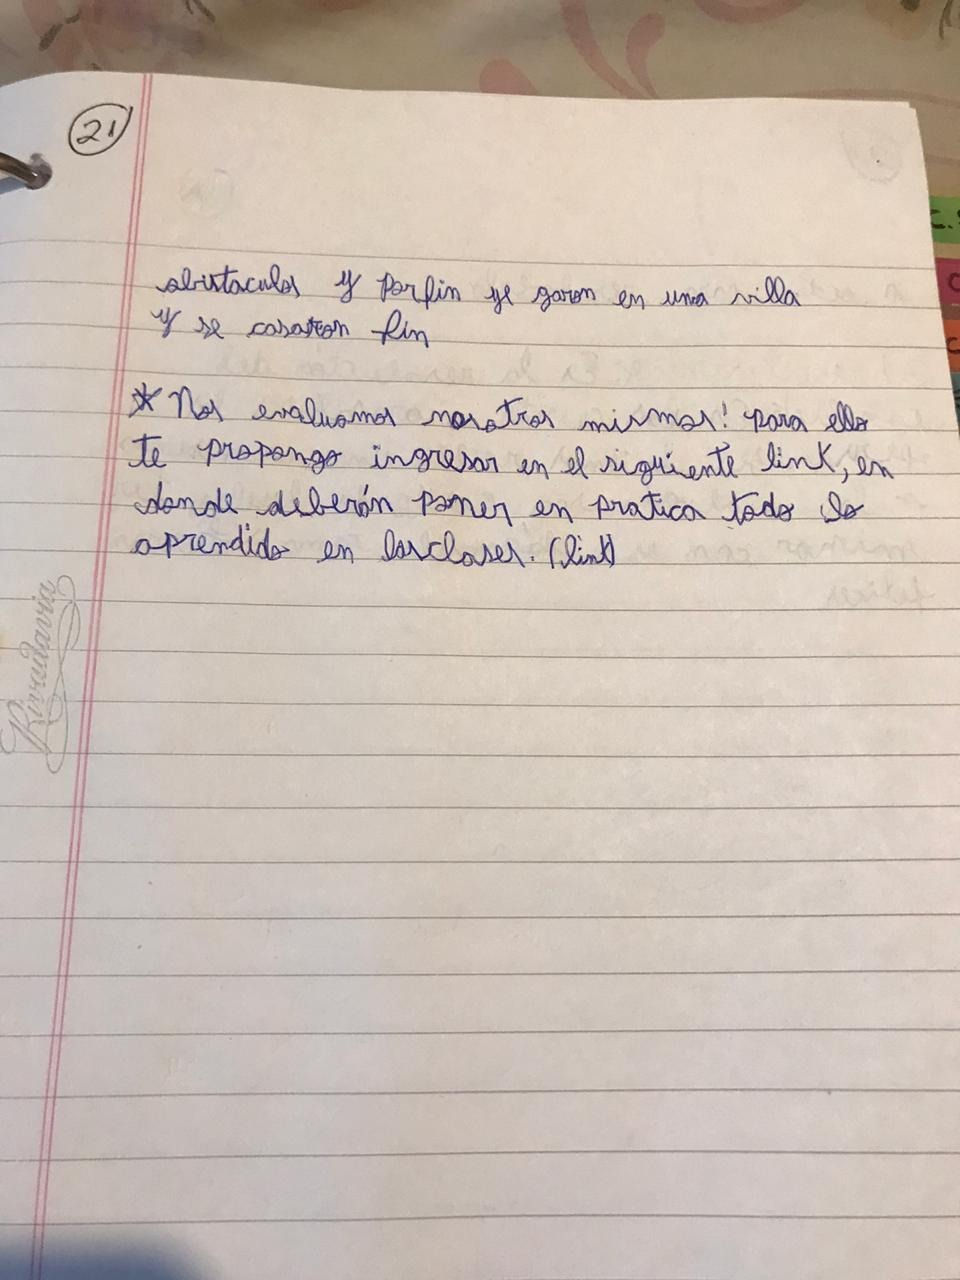 21
obstaculos y porfin ye garon en una villa
y se casaron fin
* Nos evaluamos nosotros mismos! para ello
te propongo ingresar en el siguiente link, en
donde deberón poner en pratica todo lo
aprendido en las clases. (link)
Rivadavia
C.
C
C